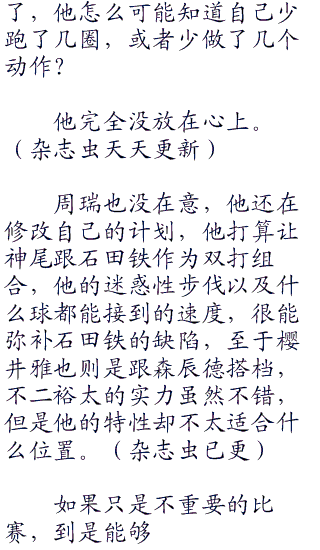 了，他怎么可能知道自己少
跑了几圈，或者少做了几个
动作？
他完全没放在心上。
（杂志虫天天更新）
周瑞也没在意，他还在
修改自己的计划，他打算让
神尾跟石田铁作为双打组
合，他的迷惑性步伐以及什
么球都能接到的速度，很能
弥补石田铁的缺陷，至于樱
井雅也则是跟森辰德搭档，
不二裕太的实力虽然不错，
但是他的特性却不太适合什
么位置。（杂志虫已更）
如果只是不重要的比
赛，到是能够